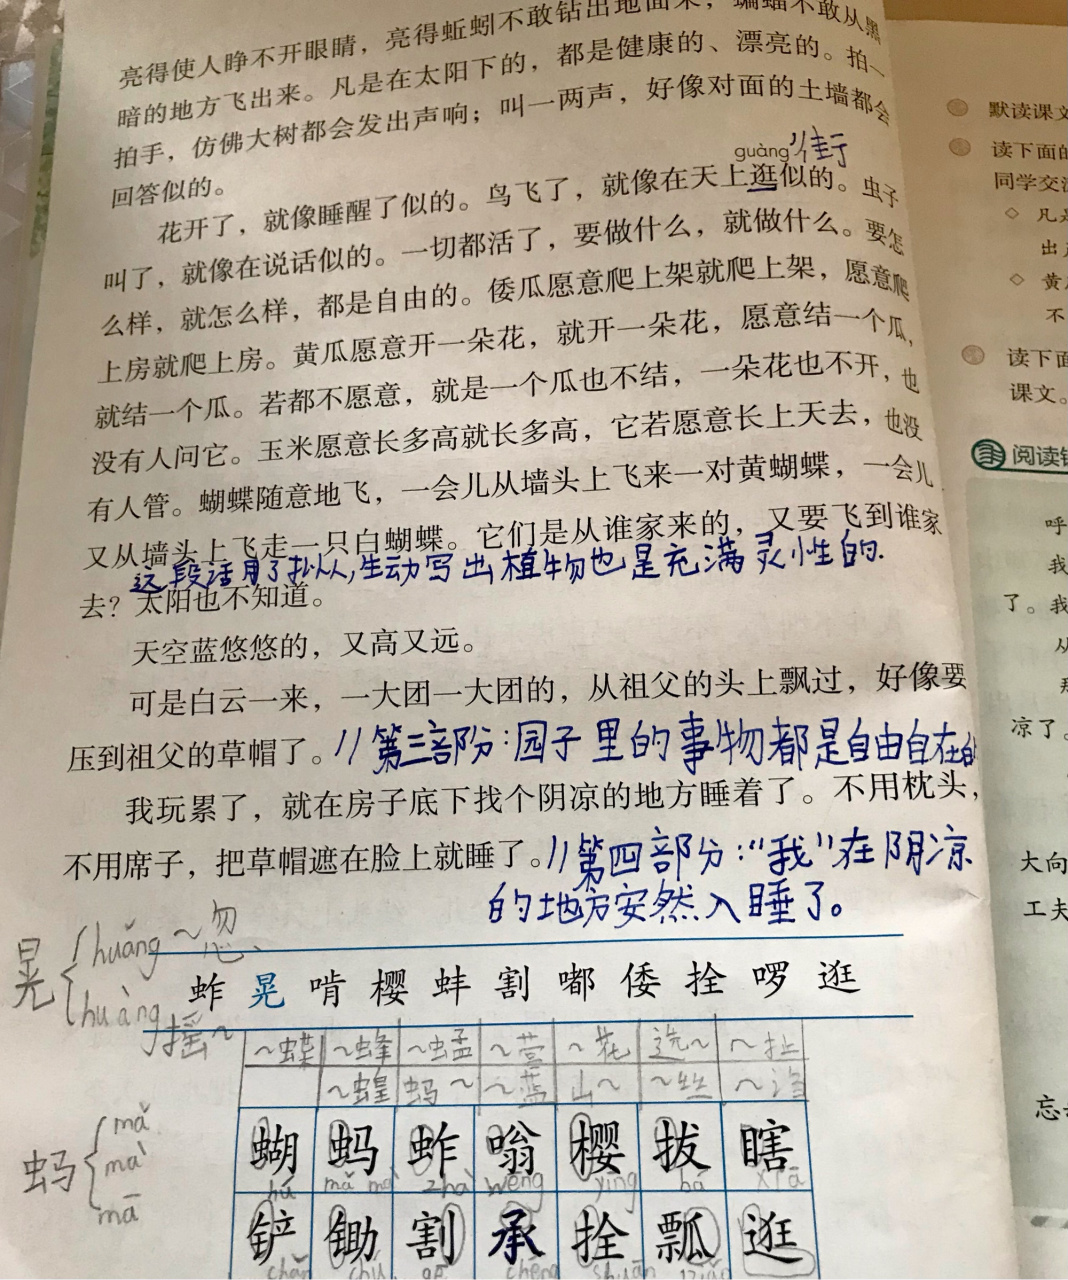 亮得使人睁不开眼睛，亮得蚯蚓不敢钻出地面来，蝙蝠不敢从黑
暗的地方飞出来。凡是在太阳下的，都是健康的、漂亮的。拍一
拍手，仿佛大树都会发出声响；叫一两声，好像对面的土墙都会
回答似的。
guàng 街
花开了，就像睡醒了似的。鸟飞了，就像在天上逛似的。虫子
叫了，就像在说话似的。一切都活了，要做什么，就做什么。要怎
么样，就怎么样，都是自由的。倭瓜愿意爬上架就爬上架，愿意爬
上房就爬上房。黄瓜愿意开一朵花，就开一朵花，愿意结一个瓜，
就结一个瓜。若都不愿意，就是一个瓜也不结，一朵花也不开，也
没有人问它。玉米愿意长多高就长多高，它若愿意长上天去，也没
有人管。蝴蝶随意地飞，一会儿从墙头上飞来一对黄蝴蝶，一会儿
又从墙头上飞走一只白蝴蝶。它们是从谁家来的，又要飞到谁家
这段话用了拟人,生动写出植物也是充满灵性的.
去？太阳也不知道。
天空蓝悠悠的，又高又远。
可是白云一来，一大团一大团的，从祖父的头上飘过，好像要
压到祖父的草帽了。//第三部份:园子里的事物都是自由自在的
我玩累了，就在房子底下找个阴凉的地方睡着了。不用枕头，
不用席子，把草帽遮在脸上就睡了。//第四部分:“我”在阴凉
的地方安然入睡了。
晃 huǎng ~忽、
huàng 摇~
蚱 晃 啃 樱 蚌 割 嘟 倭 拴 啰 逛
~蝶 ~蜂 ~蜢 ~花 选~ ~扯
~蝗 蚂~ 山~ ~丝
蚂 mǎ
mà
mā
蝴 蚂 蚱 嗡 樱 拔 瞎
hú mǎ mà zhà wēng yīng bá xiā
铲 锄 割 承 拴 瓢 逛
chǎn chú gē chéng shuān
默读课文
读下面的
同学交流
凡是
出
黄
不
读下面
课文。
阅读链
呼
我
了。我
从
那
凉了。
大向
工夫
忘